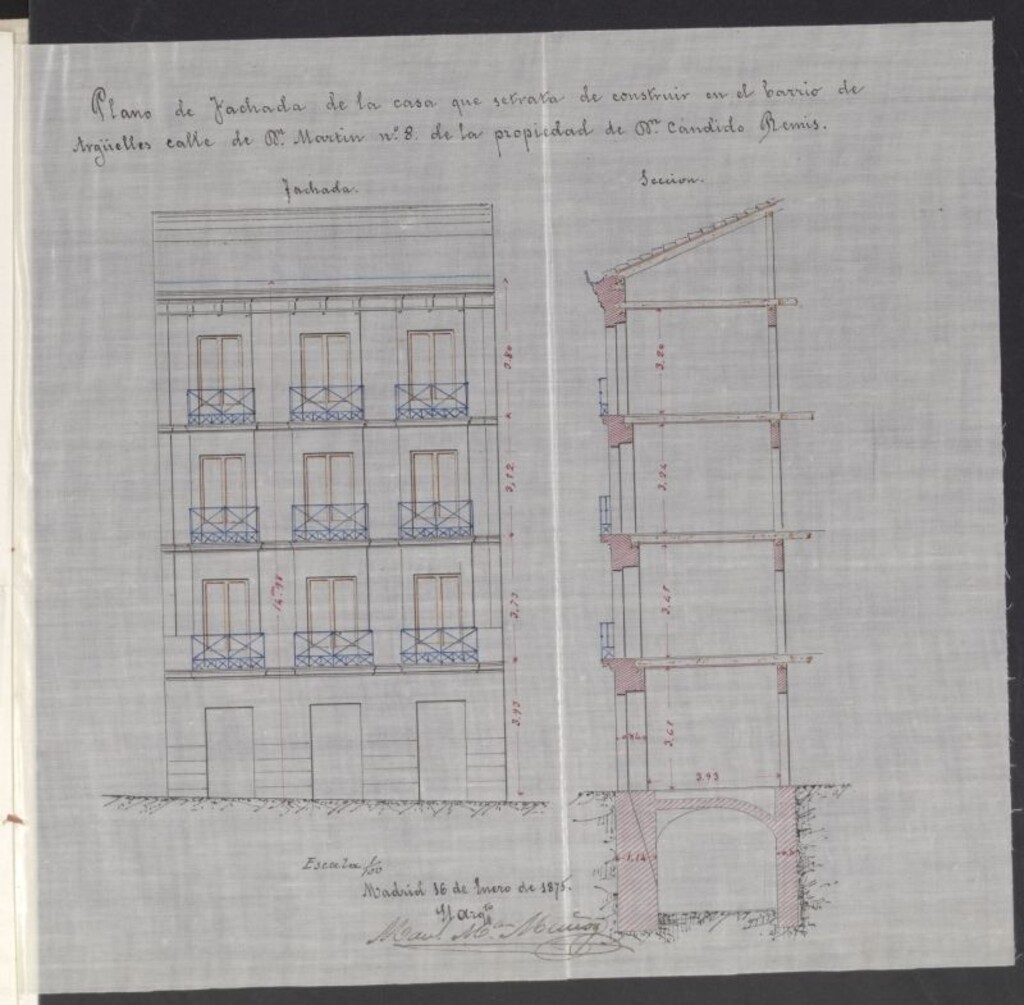 Plano de Fachada de la casa que setrata de construir en el barrio de
Argüelles calle de Dn. Martin n.º 8. de la propiedad de Dn. Cándido Remis.
Fachada.
Seccion.
3.80
3,20
3,12
3,24
14,98
3,73
3.47
3.93
3.67
3.93
1,12
Escala 1/50
Madrid 16 de Enero de 1875.
El Arqto
Manl. Ma. Muñoz